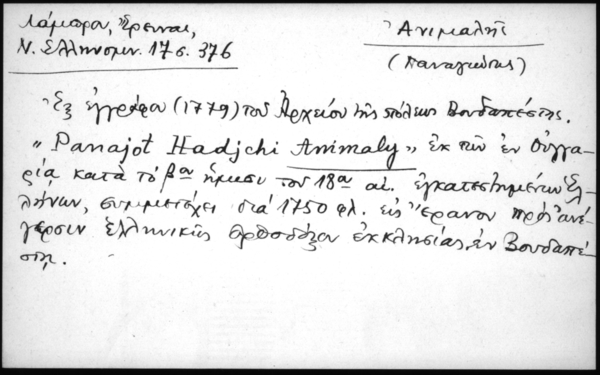 Λάμπρου, Ἔρευναι,
Ν. Ἑλληνομν. 17 σ. 376
Ἀνιμαλῆς
(Παναγιώτης)
Ἐξ ἐγγράφου (1779) τοῦ Ἀρχείου τῆς πόλεως Βουδαπέστης.
"Panajot Hadjchi Animaly" ἐκ τῶν ἐν Οὑγγα-
ρίᾳ κατὰ τὸ βον ἥμισυ τοῦ 18ου αἰ. ἐγκατεστημένων Ἑλ-
λήνων, συμμετέχει διὰ 1750 φλ. εἰς ἔρανον πρὸς ἀνέ-
γερσιν ἑλληνικῆς ὀρθοδόξου ἐκκλησίας ἐν Βουδαπέ-
στῃ.